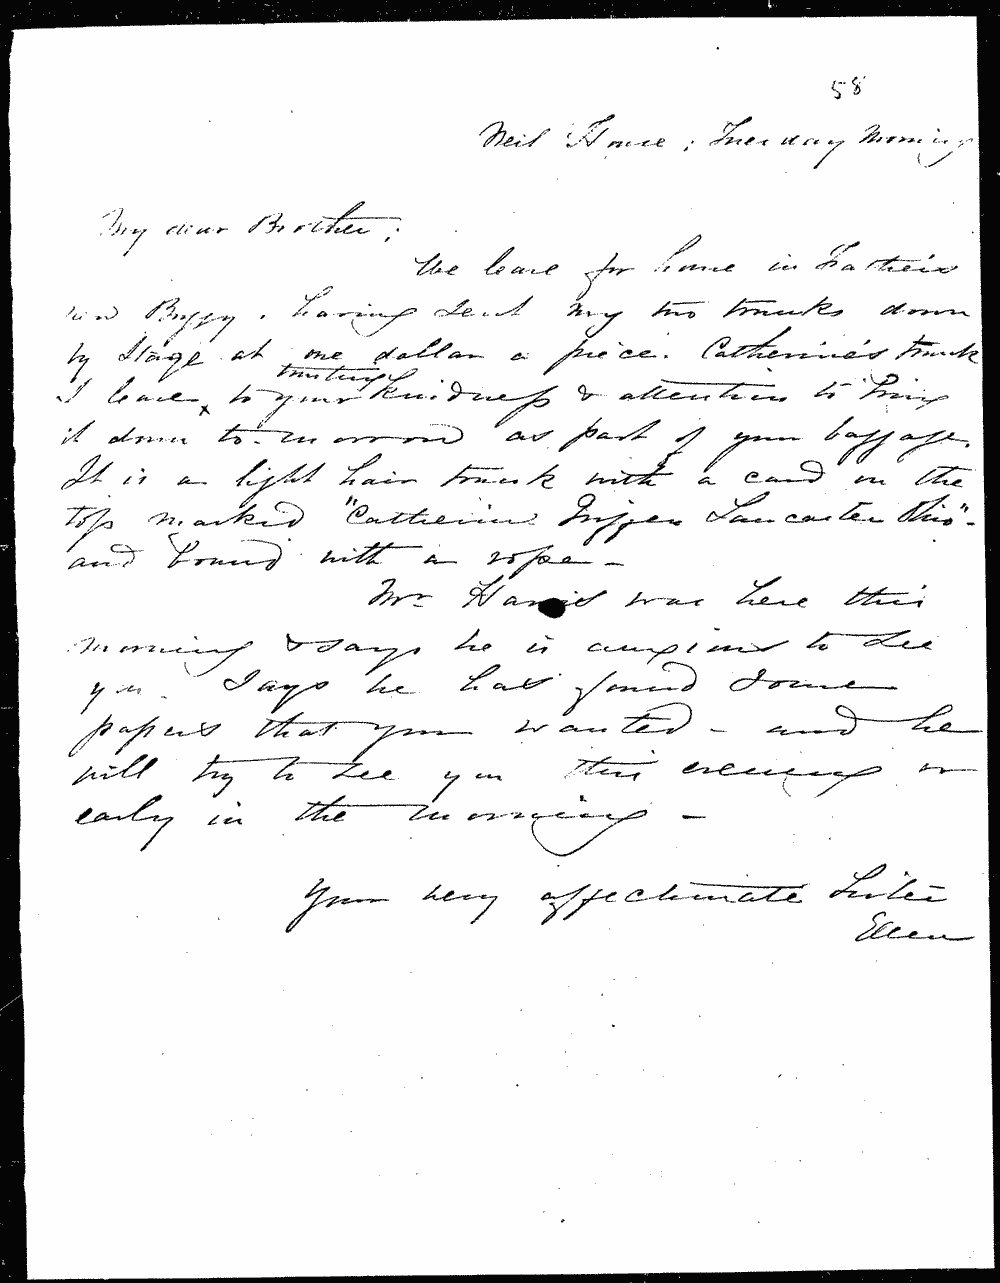 58
Neil House; Tuesday Morning
My dear Brother;
We leave for home in Father's
own Buggy, having sent my two trunks down
by Stage at one dollar a piece. Catherine's trunk
trusting
I leave x to your kindness & attention to bring
it down to-morrow as part of your baggage.
It is a light hair trunk with a card on the
top marked "Catherine Lancaster Ohio"-
and bound with a rope-
Mr. Harris was here this
morning & says he is anxious to see
you. Says he has found some
papers that you wanted - and he
will try to see you this evening or
early in the morning -
Your very affectionate Sister
Ellen